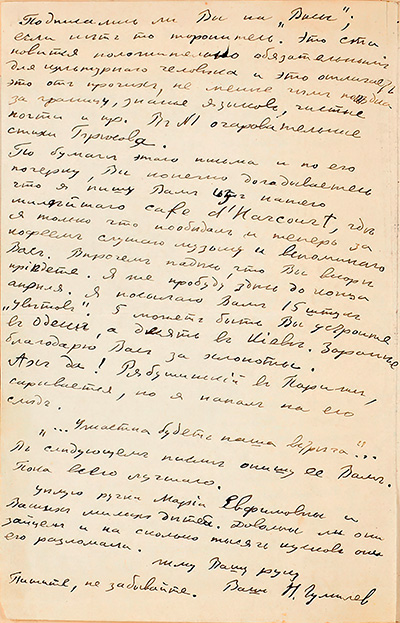 Подписались ли Вы на „Весы";
если нѣтъ то торопитесь. Это ста
новится положительно обязательнымъ
для культурнаго человѣка и это отличаетъ
его отъ прочихъ, не менѣе чѣмъ поѣздка
за границу, знаніе языковъ, чистые
ногти и пр. Въ №1 очаровательные
стихи Брюсова.
По бумагѣ этого письма и по его
почерку, Вы конечно догадываетесь
что я пишу Вамъ изъ нашего
милѣйшаго cafe d'Harcourt, гдѣ
я только что пообѣдалъ и теперь за
кофеемъ слушаю музыку и вспоминаю
Васъ. Впрочемъ надѣюсь что Вы скоро
пріѣдете. Я же пробуду здѣсь до конца
апрѣля. Я посылаю Вамъ 15 штукъ
„цвѣтовъ". 5 можетъ быть Вы устроите
въ Одессѣ, а десять въ Кіевѣ. Заранѣе
благодарю Васъ за хлопоты.
Ахъ да! Рябушинскій въ Парижѣ,
скрывается, но я напалъ на его
слѣдъ.
„... Ужасна будетъ наша встрѣча"...
Въ слѣдующемъ письмѣ опишу ее Вамъ.
Пока всего лучшаго.
Цѣлую ручки Маріи Евфимовны и
Вашихъ милыхъ дѣтей. Довольны ли они
зайцемъ и на сколько тысячъ кусковъ они
его разломали.
жму Вашу руку
Пишите, не забывайте. Вашъ Н. Гумилев